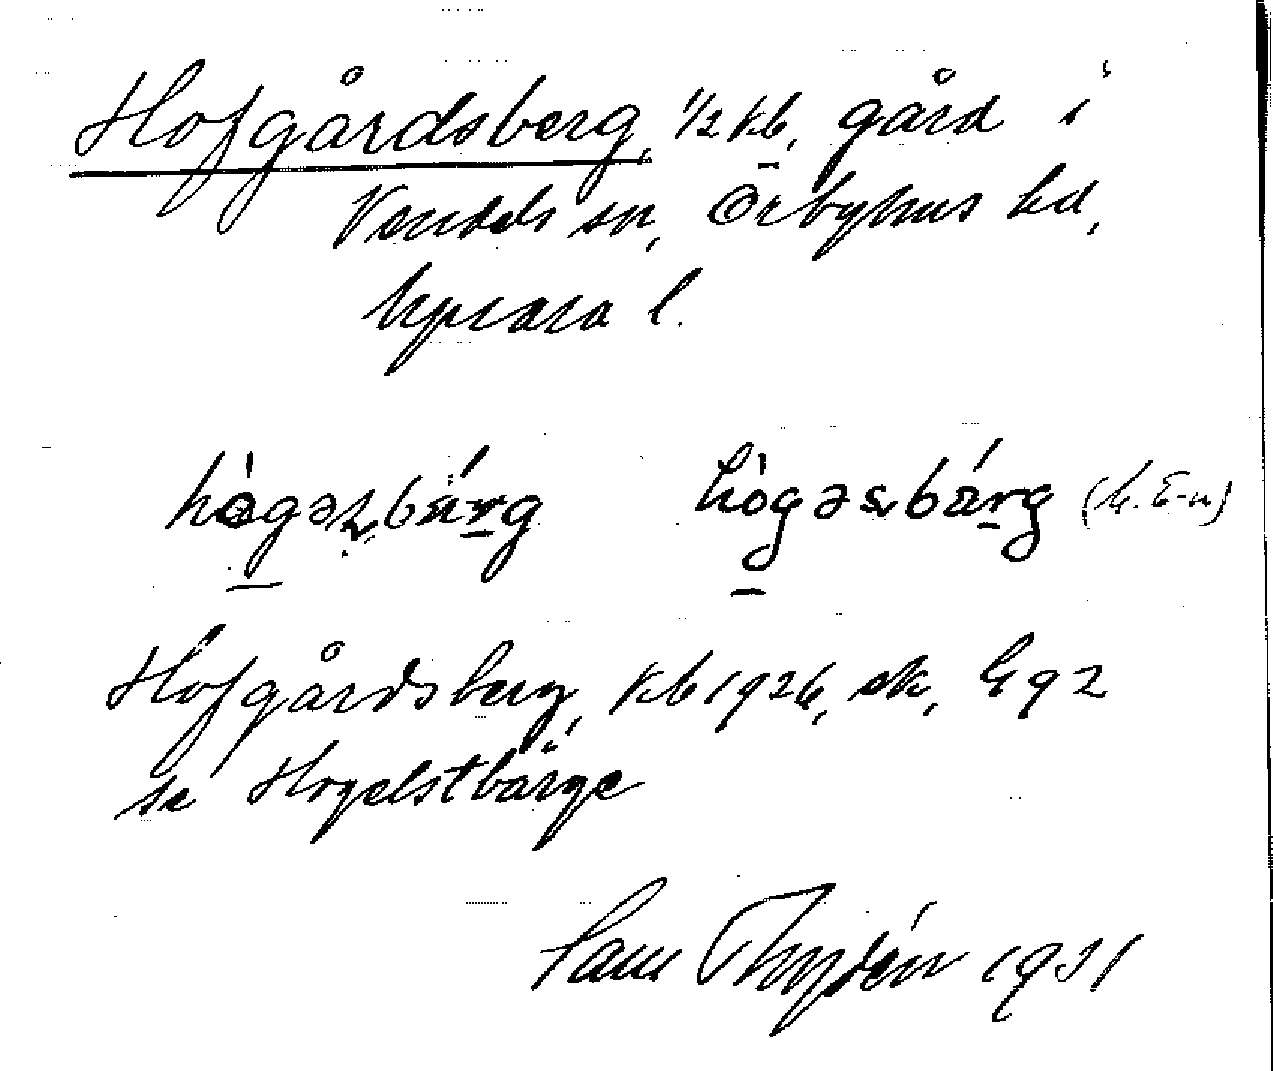 Hofgårdsberg, 1/2 kb, gård i
Vendels sn, Örbyhus hd,
Uppsala l.
hògəsbä́rg hògəsbä́rg
Hofgårdsberg, Kb 1926, ek,
se Hogelstbärge
Sam Thydén 1931